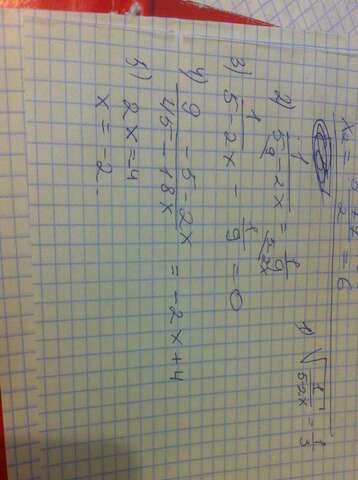 x₂ = / 2 = 6
√(1/(5-2x)) = 1/3
2) 1/(5-2x) = 1/9
3) 1/(5-2x) - 1/9 = 0
4) (9 - 5-2x)/(45-18x) = -2x+4
5) 2x=-4
x=-2.